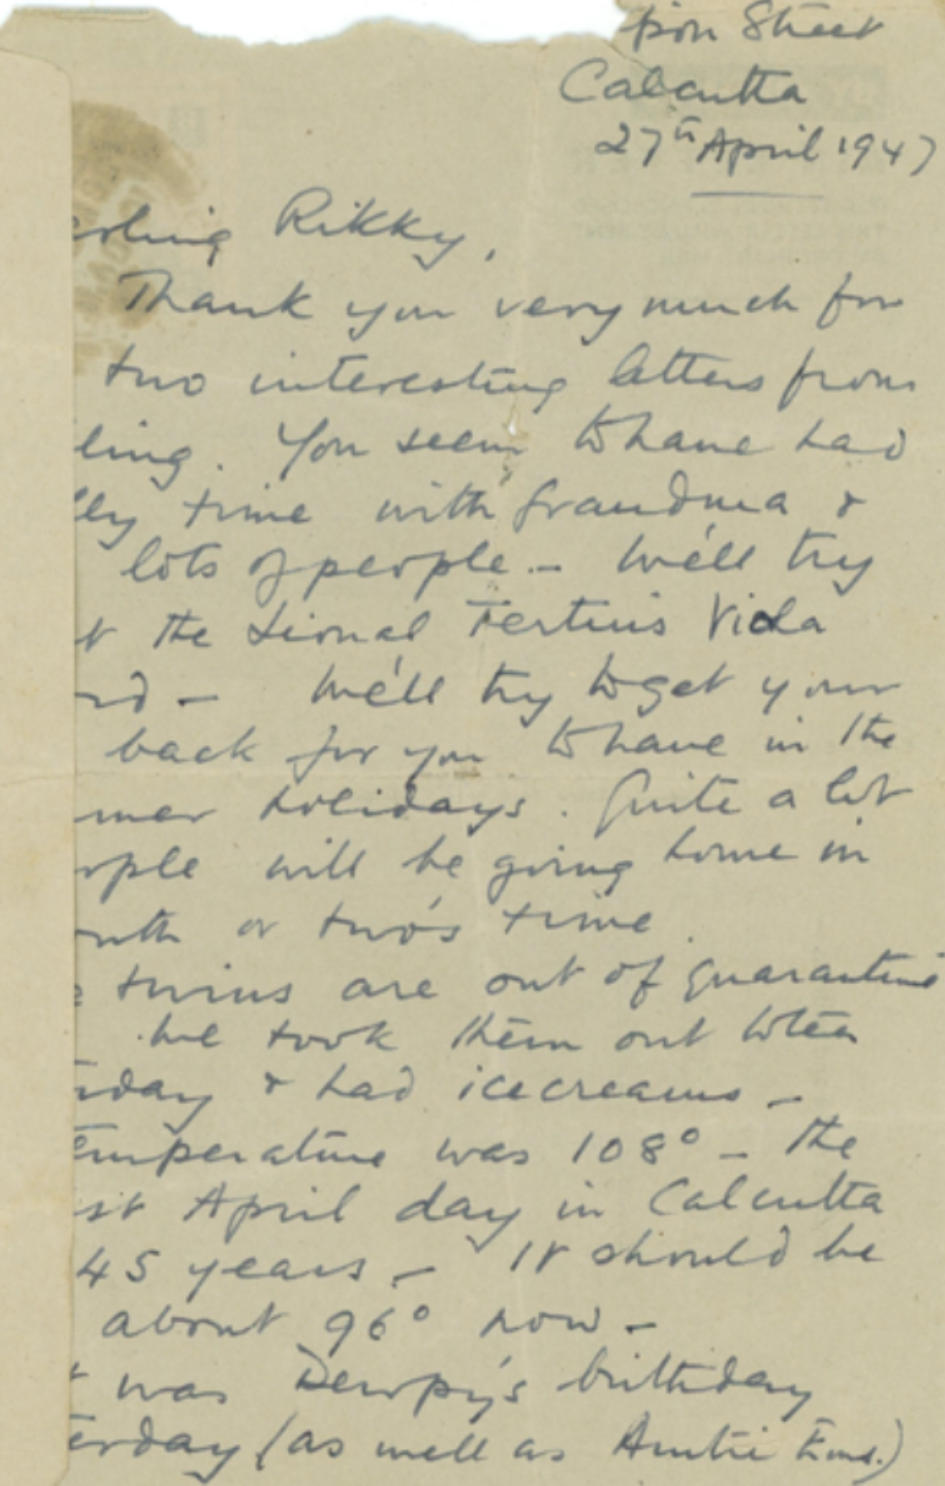 pion Street
Calcutta
27th April 1947
rling Rikky,
Thank you very much for
two interesting letters from
ling. You seem to have had
lly time with Grandma &
lots of people - We'll try
t the Lional Tertius Viola
rd - We'll try to get your
back for you to have in the
mer holidays. Quite a lot
ople will be going home in
onth or two's time.
e twins are out of quarantine
We took them out to tea
rday & had icecreams -
emperature was 108° - the
st April day in Calcutta
45 years - It should be
about 96° now -
t was Dewpy's birthday
erday (as well as Auntie Ems.)